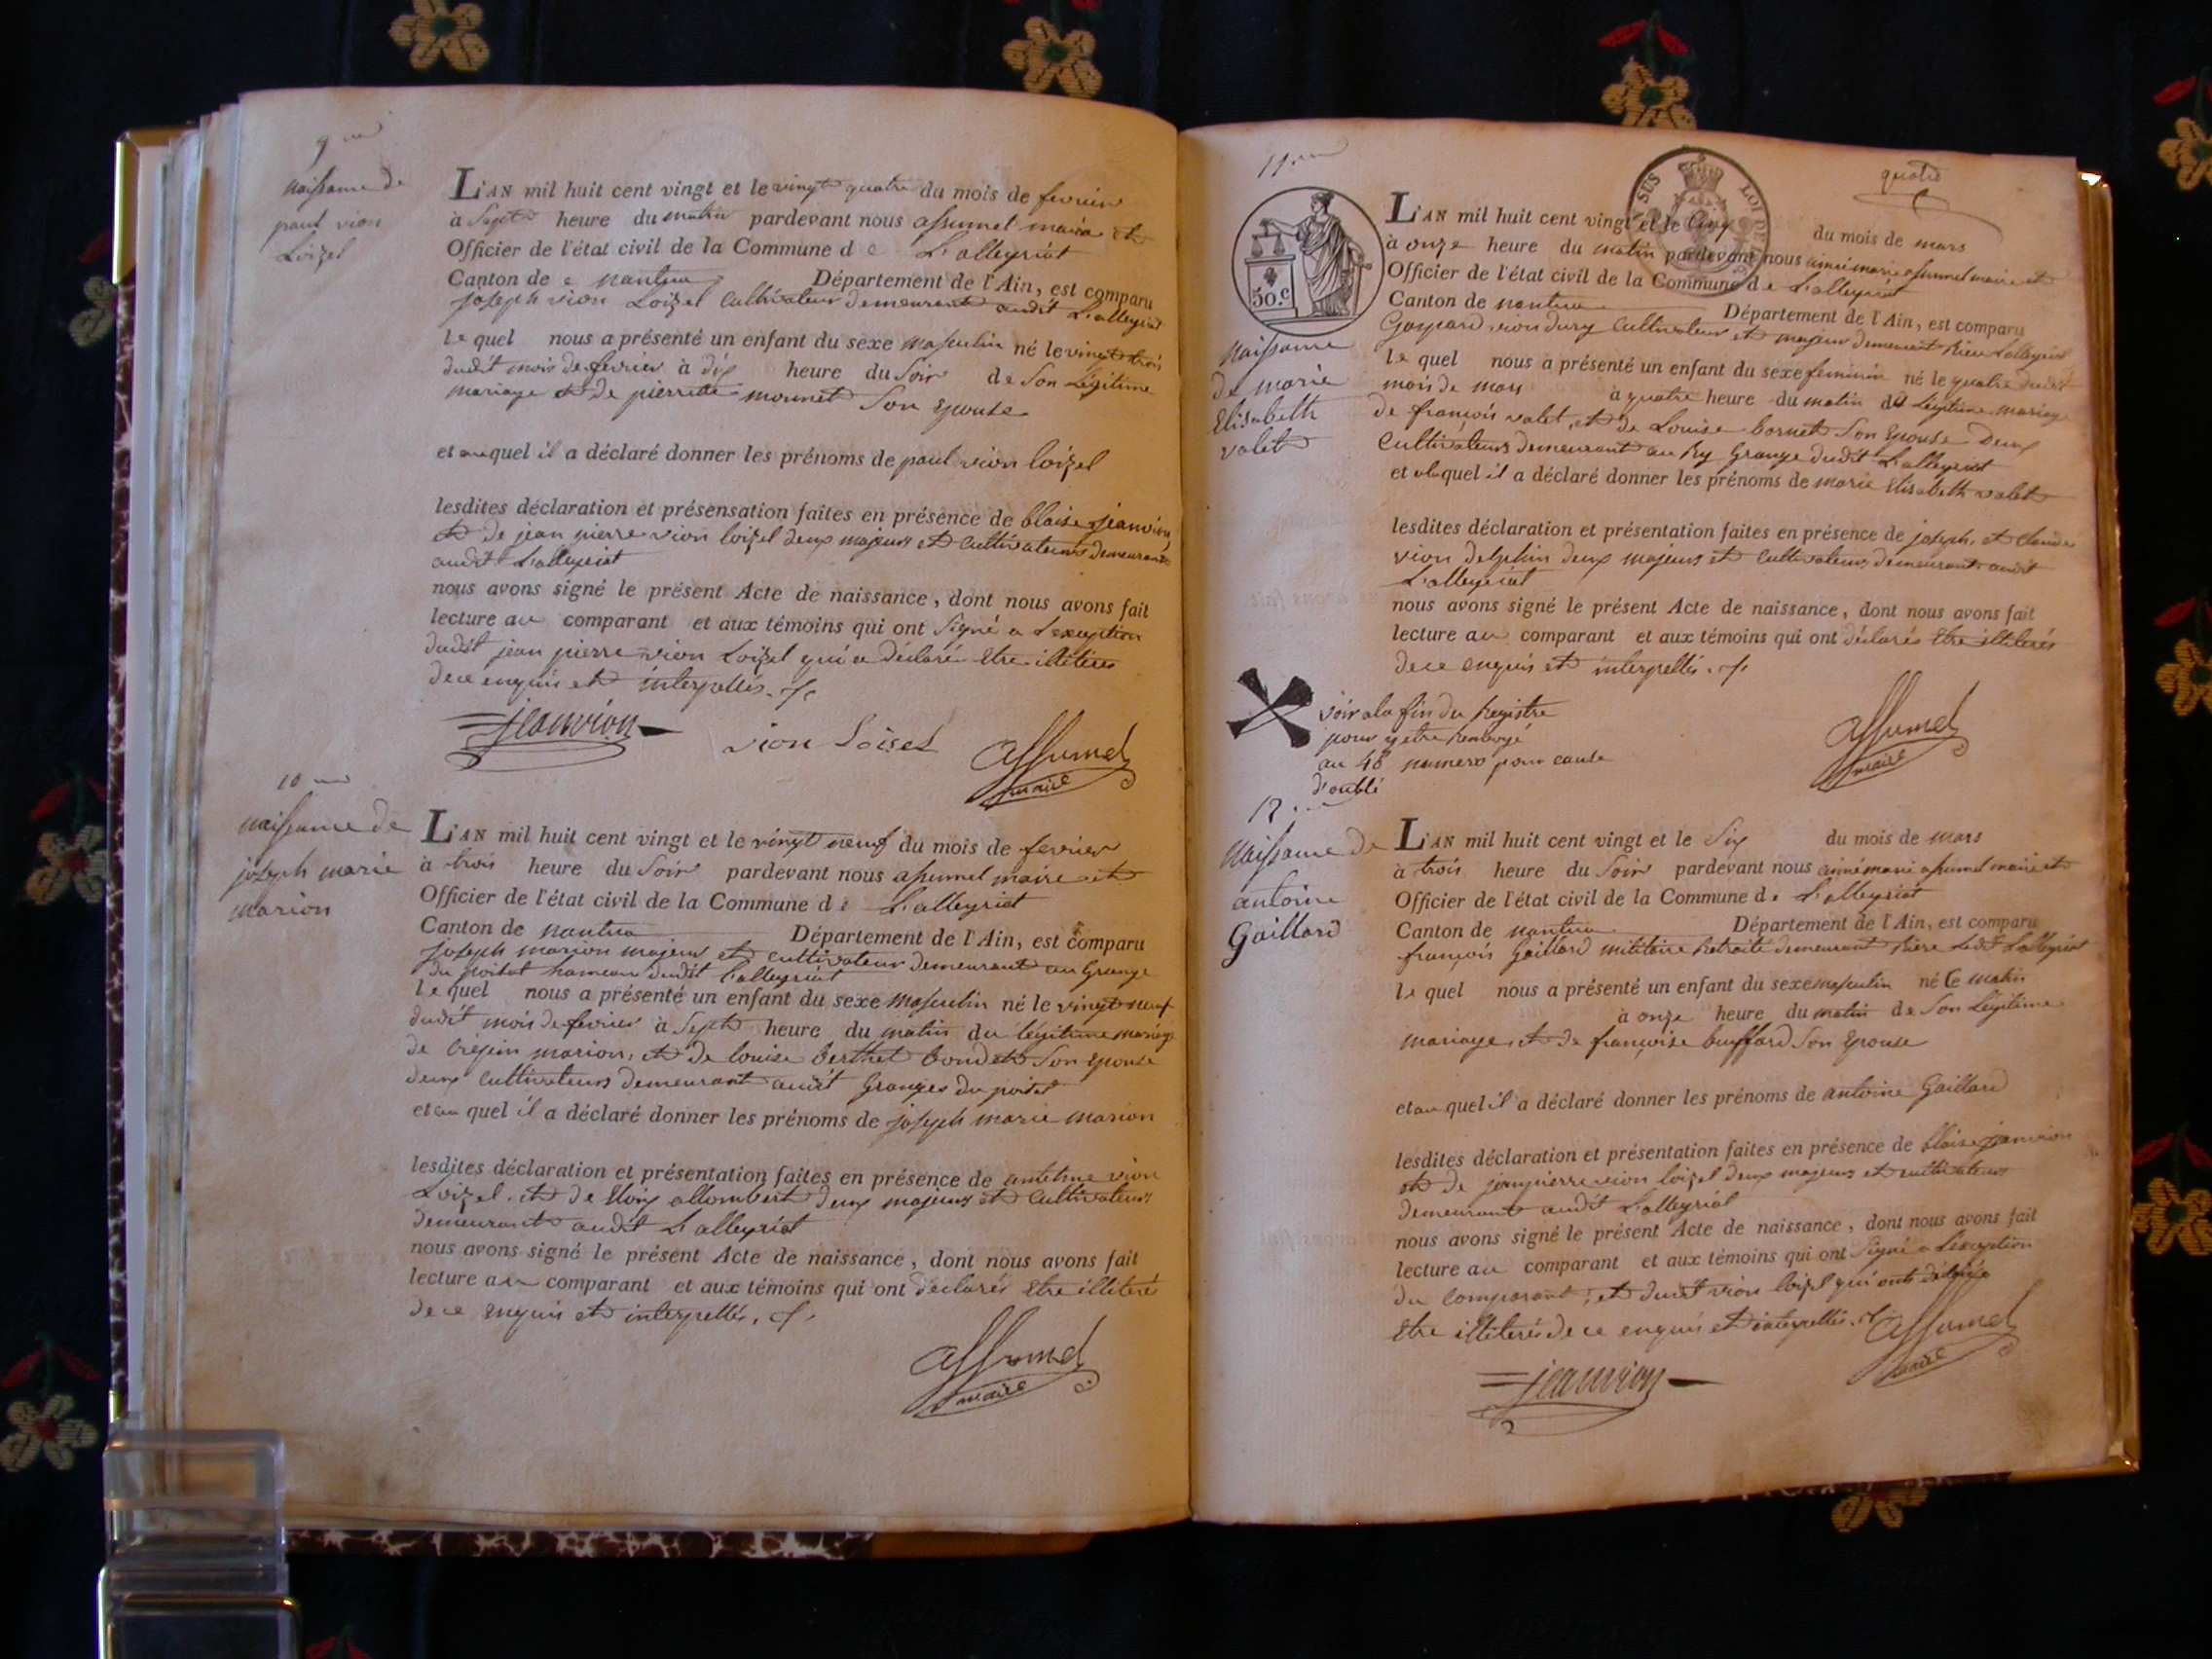 9
naissance de
paul vion
Loizel
L'AN mil huit cent vingt et le vingt quatre du mois de fevrier
à Sept heure du matin pardevant nous assumel maire et
Officier de l'état civil de la Commune de L'alleyriat
Canton de nantua Département de l'Ain, est comparu
joseph vion Loizel Cultivateur demeurant audit L'alleyriat
le quel nous a présenté un enfant du sexe masculin né le vingt trois
dudit mois de fevrier à dix heure du Soir de Son Légitime
mariage et de pierrette monnet Son Epouse
et auquel il a déclaré donner les prénoms de paul vion loizel
lesdites déclaration et présensation faites en présence de blaise jeanvion
et de jean pierre vion loizel deux majeurs et Cultivateurs demeurants
audit L'alleyriat
nous avons signé le présent Acte de naissance, dont nous avons fait
lecture au comparant et aux témoins qui ont Signé a L'exception
dudit jean pierre vion Loizel qui a déclaré Etre illitéré
de ce enquis et interpellés.
jeanvion
vion Loisel
assumel
maire
10
naissance de
joseph marie
marion
L'AN mil huit cent vingt et le vingt neuf du mois de fevrier
à trois heure du Soir pardevant nous assumel maire et
Officier de l'état civil de la Commune de L'alleyriat
Canton de nantua Département de l'Ain, est comparu
joseph marion majeur et cultivateur demeurant au Grange
du poitat hameau dudit L'alleyriat
le quel nous a présenté un enfant du sexe masculin né le vingt neuf
dudit mois de fevrier à Sept heure du matin du légitime mariage
de Crepin marion, et de louise Berthet Bondet Son Epouse
deux Cultivateurs demeurant audit Granges du poitat
et au quel il a déclaré donner les prénoms de joseph marie marion
lesdites déclaration et présentation faites en présence de antelme vion
Loizel, et de Eloix allombert deux majeurs et Cultivateurs
demeurants audit L'alleyriat
nous avons signé le présent Acte de naissance, dont nous avons fait
lecture au comparant et aux témoins qui ont déclarés Etre illitéré
de ce enquis et interpellés,
assumel
maire
11
quatre
SUS LOI DE
50.c
naissance
de marie
Elisabeth
valet
L'AN mil huit cent vingt et le Cinq du mois de mars
à onze heure du matin pardevant nous aimé marie assumel maire et
Officier de l'état civil de la Commune de L'alleyriat
Canton de nantua Département de l'Ain, est comparu
Gaspard vion dury Cultivateur et majeur demeurant Rière L'alleyriat
le quel nous a présenté un enfant du sexe feminin né le quatre dudit
mois de mars à quatre heure du matin du Légitime mariage
de françois valet, et de Louise bornet Son Epouse Deux
Cultivateurs demeurant au Grange dudit L'alleyriat
et auquel il a déclaré donner les prénoms de marie Elisabeth valet
lesdites déclaration et présentation faites en présence de joseph, et Claude
vion delphin deux majeurs et Cultivateurs demeurants audit
L'alleyriat
nous avons signé le présent Acte de naissance, dont nous avons fait
lecture au comparant et aux témoins qui ont déclarés Etre illiterés
de ce enquis et interpellés.
assumel
maire
voir a la fin du Registre
pour y etre Renvoyé
au 48 numero pour cause
d'oubli
12
Naissance de
antoine
Gaillard
L'AN mil huit cent vingt et le Six du mois de mars
à trois heure du Soir pardevant nous aimé marie assumel maire et
Officier de l'état civil de la Commune de L'alleyriat
Canton de nantua Département de l'Ain, est comparu
françois Gaillard militaire Retraité demeurant Rière Ledit L'alleyriat
le quel nous a présenté un enfant du sexe masculin né Ce matin
à onze heure du matin de Son Légitime
mariage, et de françoise buffard Son Epouse
et au quel il a déclaré donner les prénoms de antoine Gaillard
lesdites déclaration et présentation faites en présence de blaise jeanvion
et de jeanpierre vion loizel deux majeurs et cultivateurs
demeurants audit L'alleyriat
nous avons signé le présent Acte de naissance, dont nous avons fait
lecture au comparant et aux témoins qui ont Signé a L'exception
du Comparant, et dudit vion loizel qui ont déclaré
Etre illiterés de ce enquis et interpellés.
assumel
maire
jeanvion